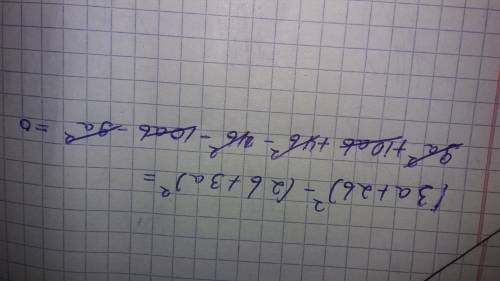 (3a+2b)² - (2b+3a)² =
9a² + 10ab + 4b² - 4b² - 10ab - 9a² = 0